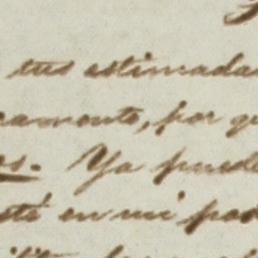 tus estimada
camente, por q
os. Ya puede
sté en mi po